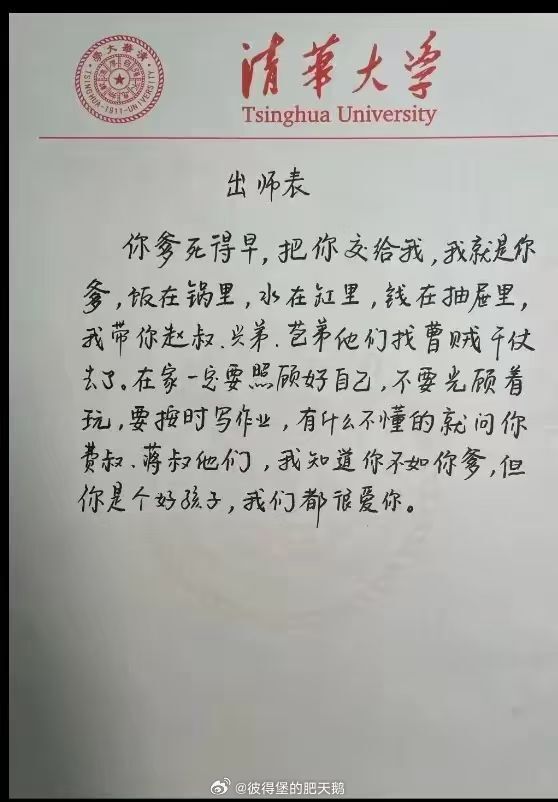 清華大學
TSINGHUA-1911-UNIVERSITY
清华大学
Tsinghua University
出师表
你爹死得早，把你交给我，我就是你
爹，饭在锅里，水在缸里，钱在抽屉里，
我带你赵叔、兴弟、苞弟他们找曹贼干仗
去了。在家一定要照顾好自己，不要光顾着
玩，要按时写作业，有什么不懂的就问你
费叔、蒋叔他们，我知道你不如你爹，但
你是个好孩子，我们都很爱你。
@彼得堡的肥天鹅